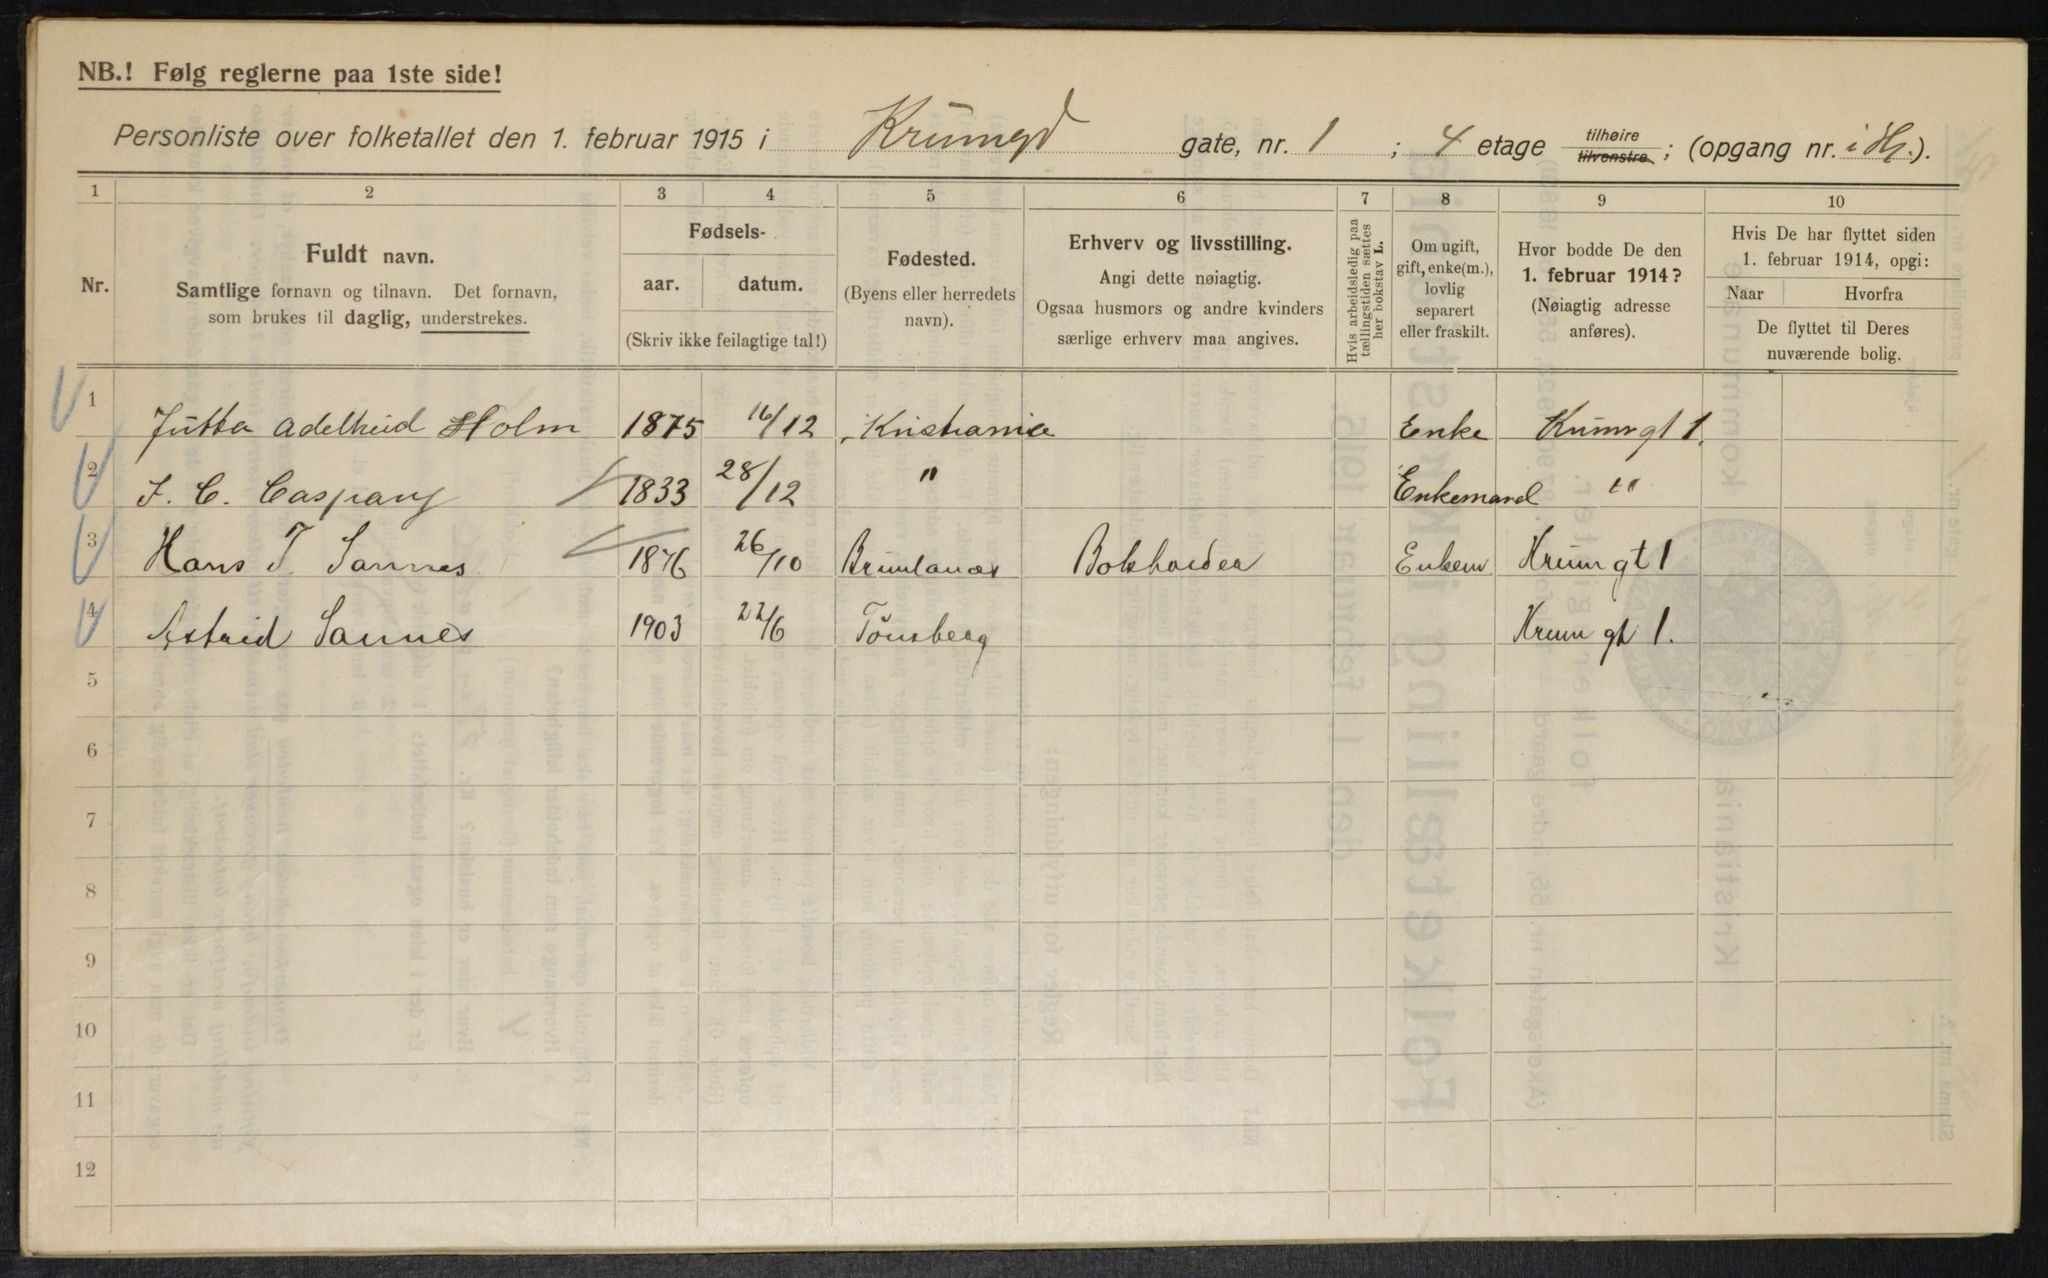 NB.! Følg reglerne paa 1ste side!
Personliste over folketallet den 1. februar 1915 i Krumgd gate, nr. 1 ; 4 etage tilhøire tilvenstre ; (opgang nr. i Hj.).
1 2 3 4 5 6 7 8 9 10
Nr.
Fuldt navn.
Samtlige fornavn og tilnavn. Det fornavn,
som brukes til daglig, understrekes.
Fødsels-
aar. datum.
(Skriv ikke feilagtige tal!)
Fødested.
(Byens eller herredets
navn).
Erhverv og livsstilling.
Angi dette nøiagtig.
Ogsaa husmors og andre kvinders
særlige erhverv maa angives.
Hvis arbeidsledig paa
tællingstiden sættes
her bokstav L.
Om ugift,
gift, enke(m.),
lovlig
separert
eller fraskilt.
Hvor bodde De den
1. februar 1914?
(Nøiagtig adresse
anføres).
Hvis De har flyttet siden
1. februar 1914, opgi:
Naar Hvorfra
De flyttet til Deres
nuværende bolig.
1 Jutta Adelheid Holm 1875 16/12 Kristiania Enke Krumgt 1.
2 J. C. Caspary 1833 28/12 " Enkemand "
3 Hans T. Sannes 1876 26/10 Brunlanæs Bokholder Enkem Krumgt 1
4 Astrid Sannes 1903 22/6 Tönsberg Krumgt 1.
5
6
7
8
9
10
11
12